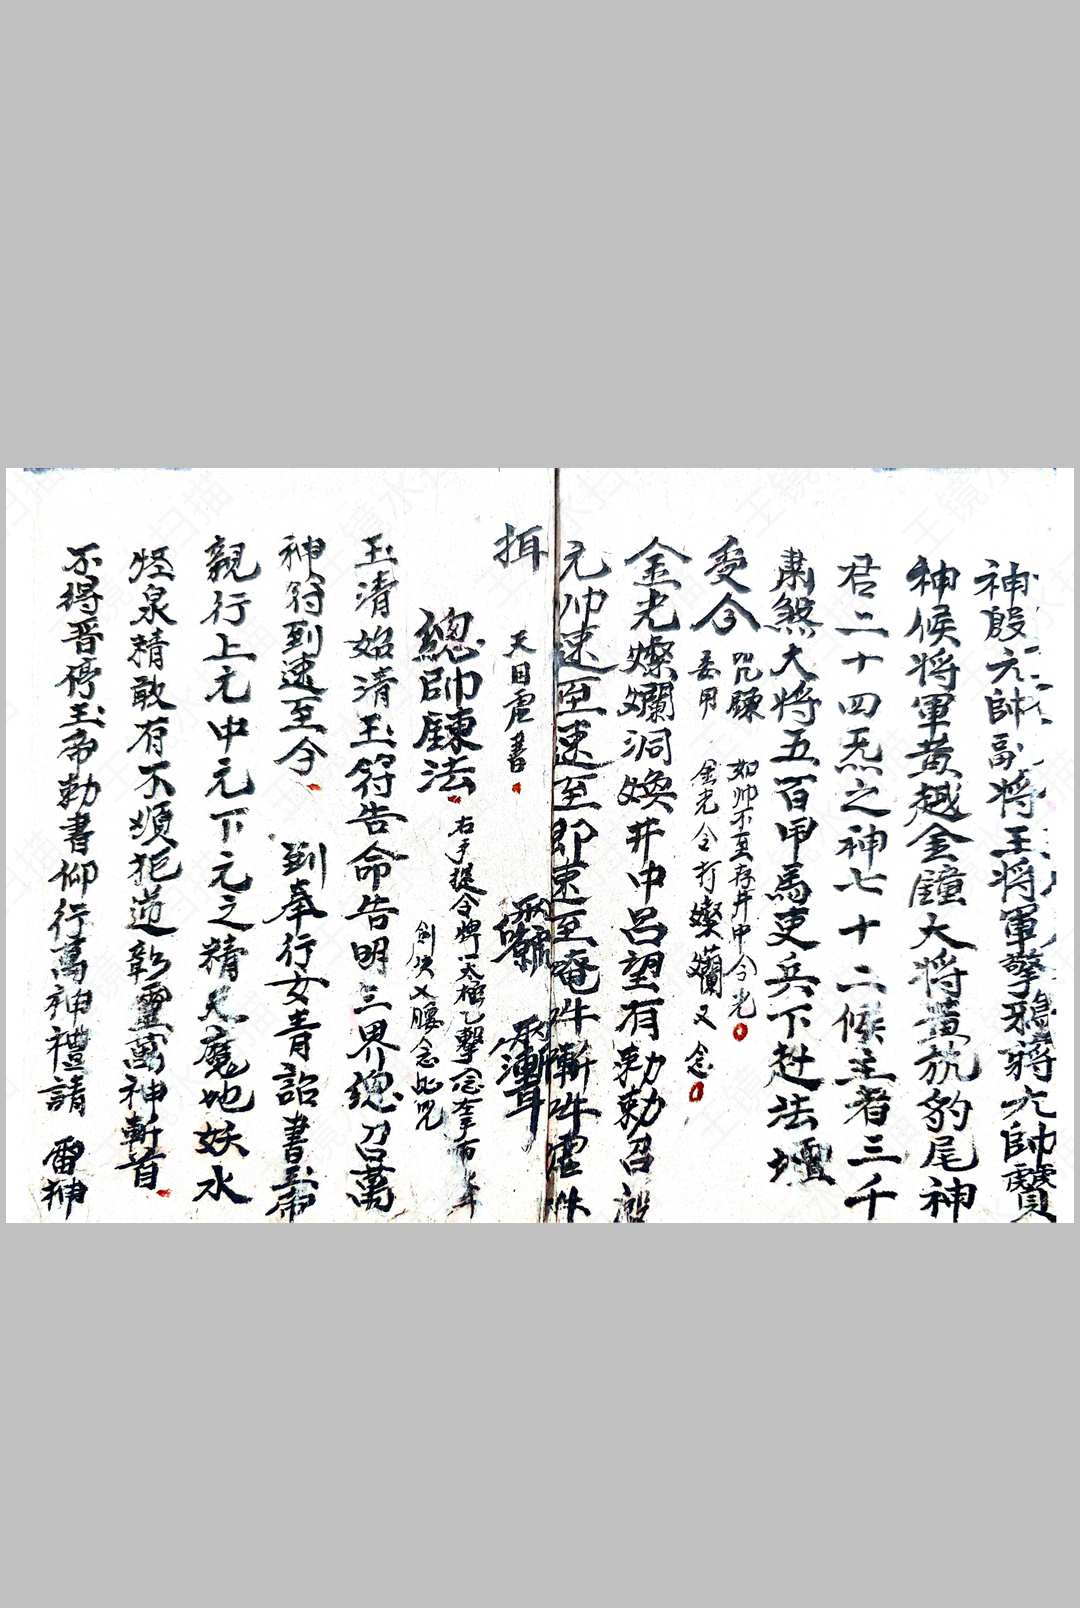 神殷元帥副將王將軍擎鴉蔣元帥
神候将軍黄越金鐘大将黄旛豹尾神
君二十四炁之神七十二候主者三千
肅煞大將五百甲馬吏兵下赴法壇
受令
咒鍊 如帅不至存井中令光
委用 金光令打燦爛又念
金光燦爛洞煥井中呂望有勅勅召殷
元帅速至速至即速至唵吽
揖 天目虛書
總帥鍊法
右手提令牌
劍訣叉腰念此咒
玉清始清玉符告命告明三界總召萬
神符到速至今 到奉行女青詔書玉帝
親行上元中元下元之精 魔地妖水
怪泉精敢有不順犯道彰靈萬神斬首
不得晋停玉帝勅書仰行萬神禮請 雷神